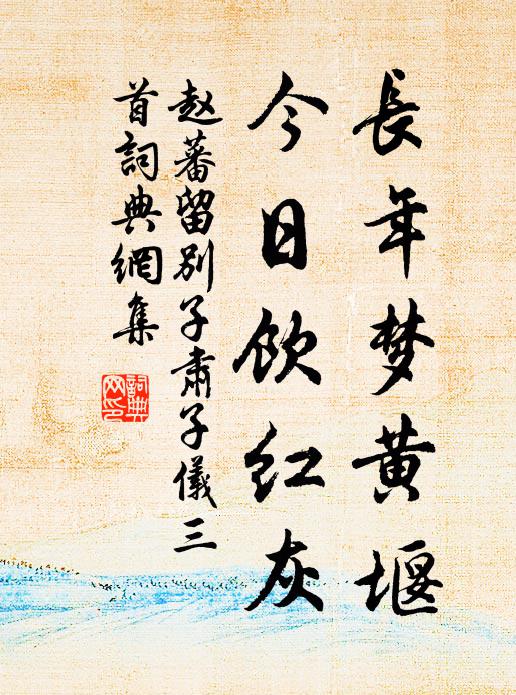 長年梦黄堰
今日飲红灰
赵蕃留别子肃子儀三
首詞典網集
詞典
网印